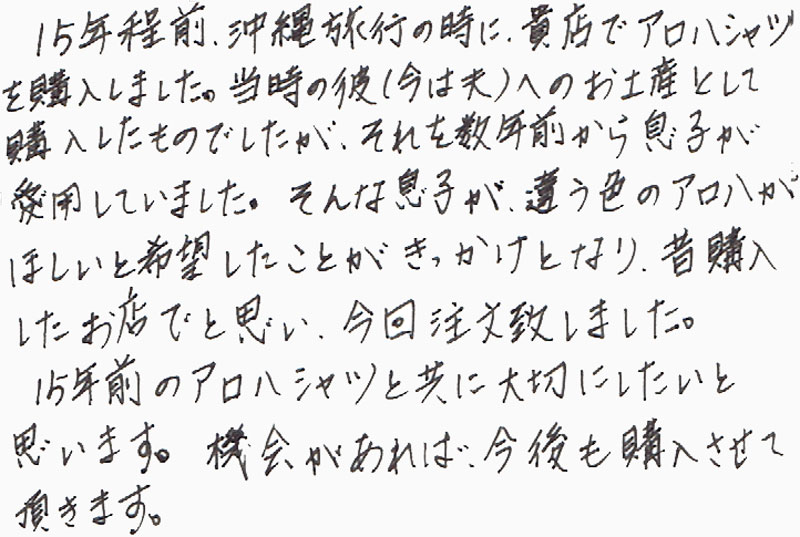 15年程前、沖縄旅行の時に、貴店でアロハシャツ
を購入しました。当時の彼(今は夫)へのお土産として
購入したものでしたが、それを数年前から息子が
愛用していました。そんな息子が、違う色のアロハが
ほしいと希望したことがきっかけとなり、昔購入
したお店でと思い、今回注文致しました。
15年前のアロハシャツと共に大切にしたいと
思います。機会があれば、今後も購入させて
頂きます。